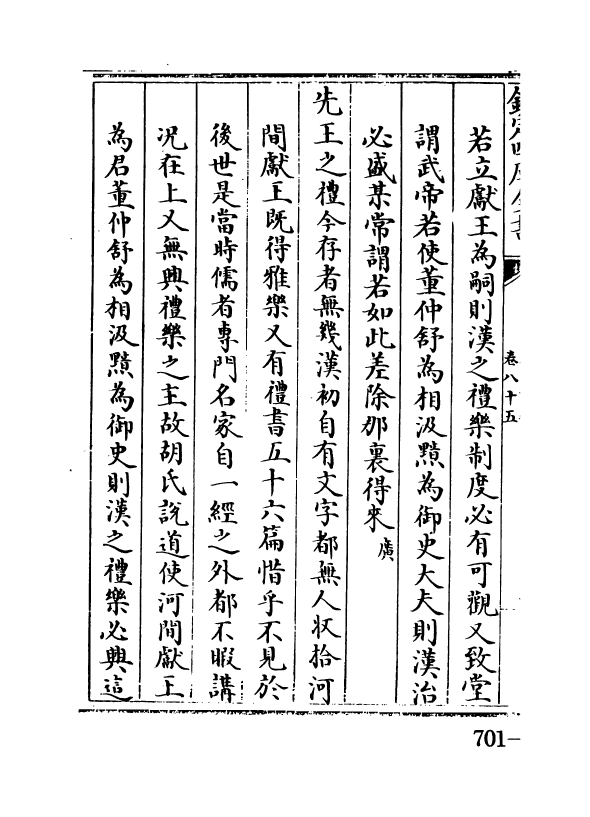 欽定四庫全書
卷八十五
若立獻王為嗣則漢之禮樂制度必有可觀又致堂
謂武帝若使董仲舒為相汲黯為御史大夫則漢治
必盛某常謂若如此差除那裏得來廣
先王之禮今存者無幾漢初自有文字都無人收拾河
間獻王既得雅樂又有禮書五十六篇惜乎不見於
後世是當時儒者專門名家自一經之外都不暇講
況在上又無興禮樂之主故胡氏說道使河間獻王
為君董仲舒為相汲黯為御史則漢之禮樂必興這
701-